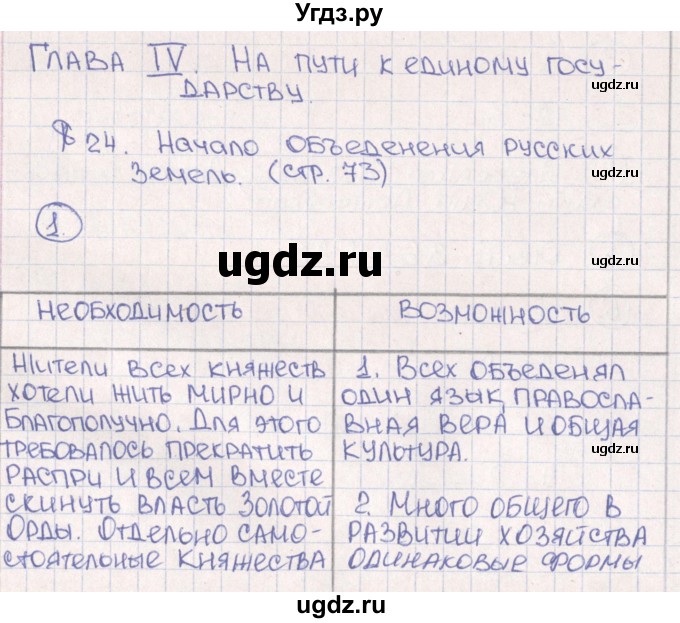 Угдз.ру
ГЛАВА IV. НА ПУТИ К ЕДИНОМУ ГОСУ-
ugdz.ru
ДАРСТВУ.
§ 24. НАЧАЛО ОБЪЕДЕНЕНИЯ РУССКИХ
ugdz.ru
ЗЕМЕЛЬ. (СТР. 73)
1.
ugdz.ru
ugdz.ru
НЕОБХОДИМОСТЬ
ВОЗМОЖНОСТЬ
ugdz.ru
ЖИТЕЛИ ВСЕХ КНЯЖЕСТВ
ХОТЕЛИ ЖИТЬ МИРНО И
БЛАГОПОЛУЧНО. ДЛЯ ЭТОГО
ТРЕБОВАЛОСЬ ПРЕКРАТИТЬ
РАСПРИ И ВСЕМ ВМЕСТЕ
СКИНУТЬ ВЛАСТЬ ЗОЛОТОЙ
ОРДЫ. ОТДЕЛЬНО САМО-
СТОЯТЕЛЬНЫЕ КНЯЖЕСТВА
1. ВСЕХ ОБЪЕДЕНЯЛ
ОДИН ЯЗЫК, ПРАВОСЛА-
ВНАЯ ВЕРА И ОБЩАЯ
КУЛЬТУРА.
ugdz.ru
2. МНОГО ОБЩЕГО В
РАЗВИТИИ ХОЗЯЙСТВА
ОДИНАКОВЫЕ ФОРМЫ
ugdz.ru
ugdz.ru